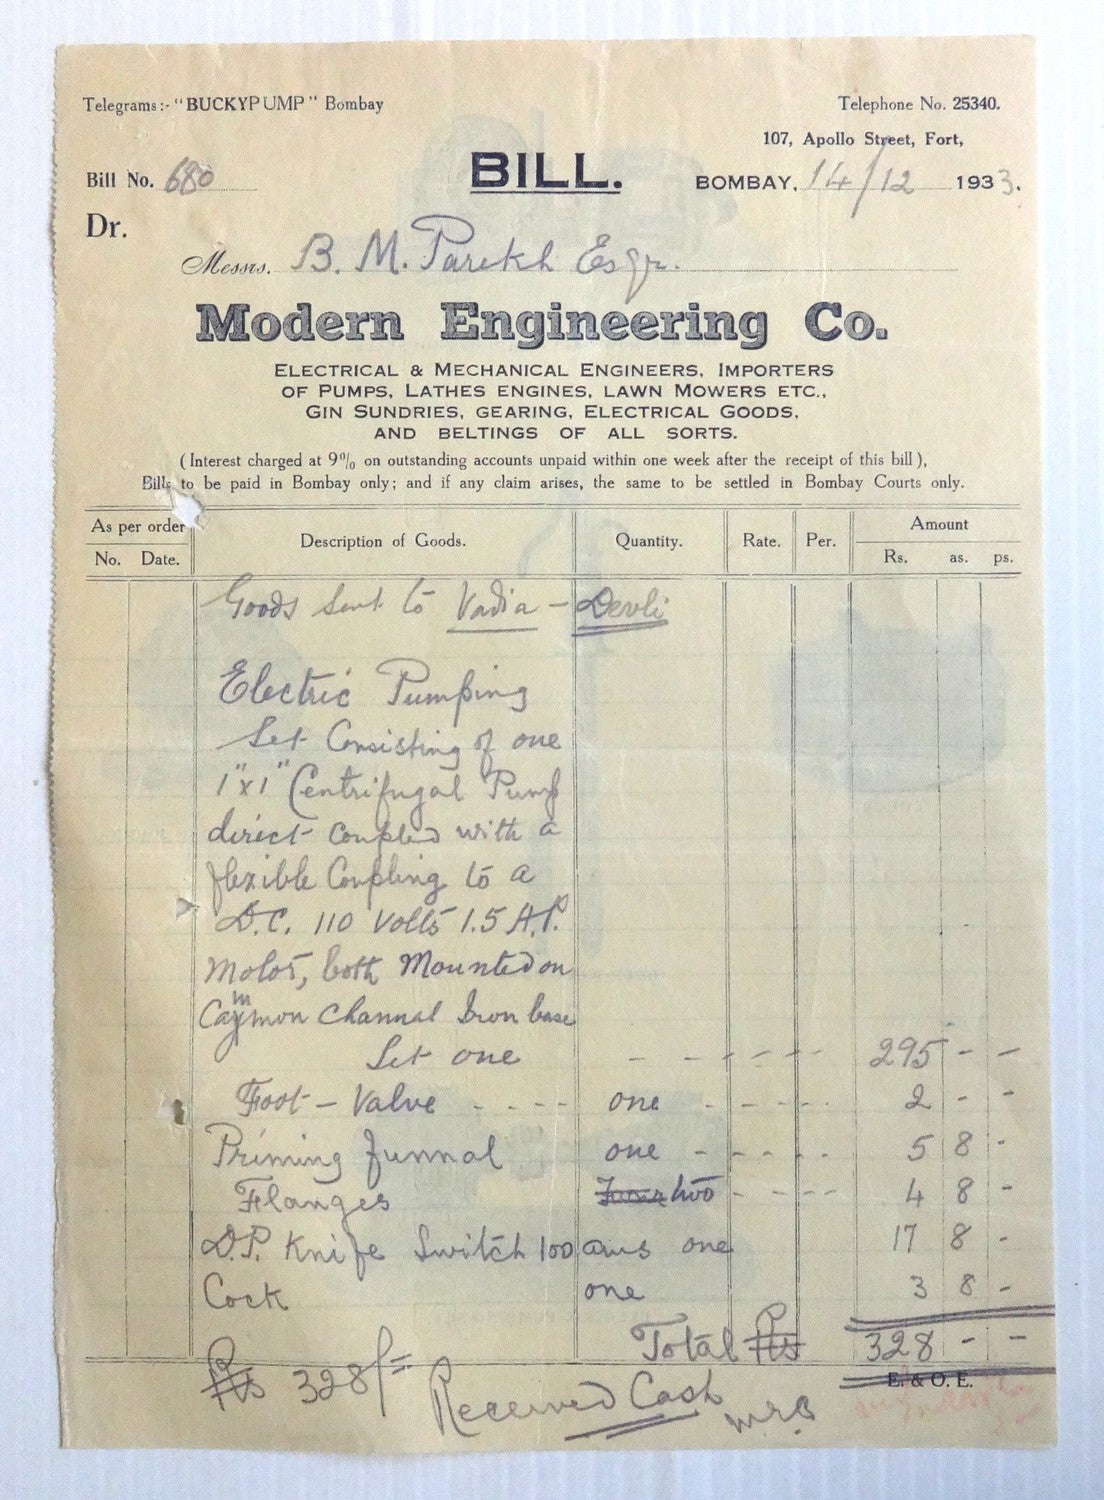 Telegrams:- "BUCKYPUMP" Bombay
Telephone No. 25340.
107, Apollo Street, Fort,
Bill No. 680
BILL.
BOMBAY, 14/12 1933.
Dr.
Messrs. B. M. Parekh Esqr.
Modern Engineering Co.
ELECTRICAL & MECHANICAL ENGINEERS, IMPORTERS
OF PUMPS, LATHES ENGINES, LAWN MOWERS ETC.,
GIN SUNDRIES, GEARING, ELECTRICAL GOODS,
AND BELTINGS OF ALL SORTS.
(Interest charged at 9% on outstanding accounts unpaid within one week after the receipt of this bill),
Bills to be paid in Bombay only; and if any claim arises, the same to be settled in Bombay Courts only.
As per order
No. Date.
Description of Goods.
Quantity.
Rate.
Per.
Amount
Rs. as. ps.
Goods sent to Vadia - Devli
Electric Pumping
Set Consisting of one
1"x1" Centrifugal Pump
direct coupled with a
flexible Coupling to a
D.C. 110 Volts 1.5 H.P.
Motor, both Mounted on
Common Channal Iron base
Set one - - - - - - 295 - -
Foot - Valve - - - - one - - - - - 2 - -
Priming funnal one - - - - - 5 8 -
Flanges two - - - - 4 8 -
D.P. Knife Switch 100 ams one 17 8 -
Cock one 3 8 -
Total Rs 328 - -
Rs 328/=
E. & O. E.
Received Cash